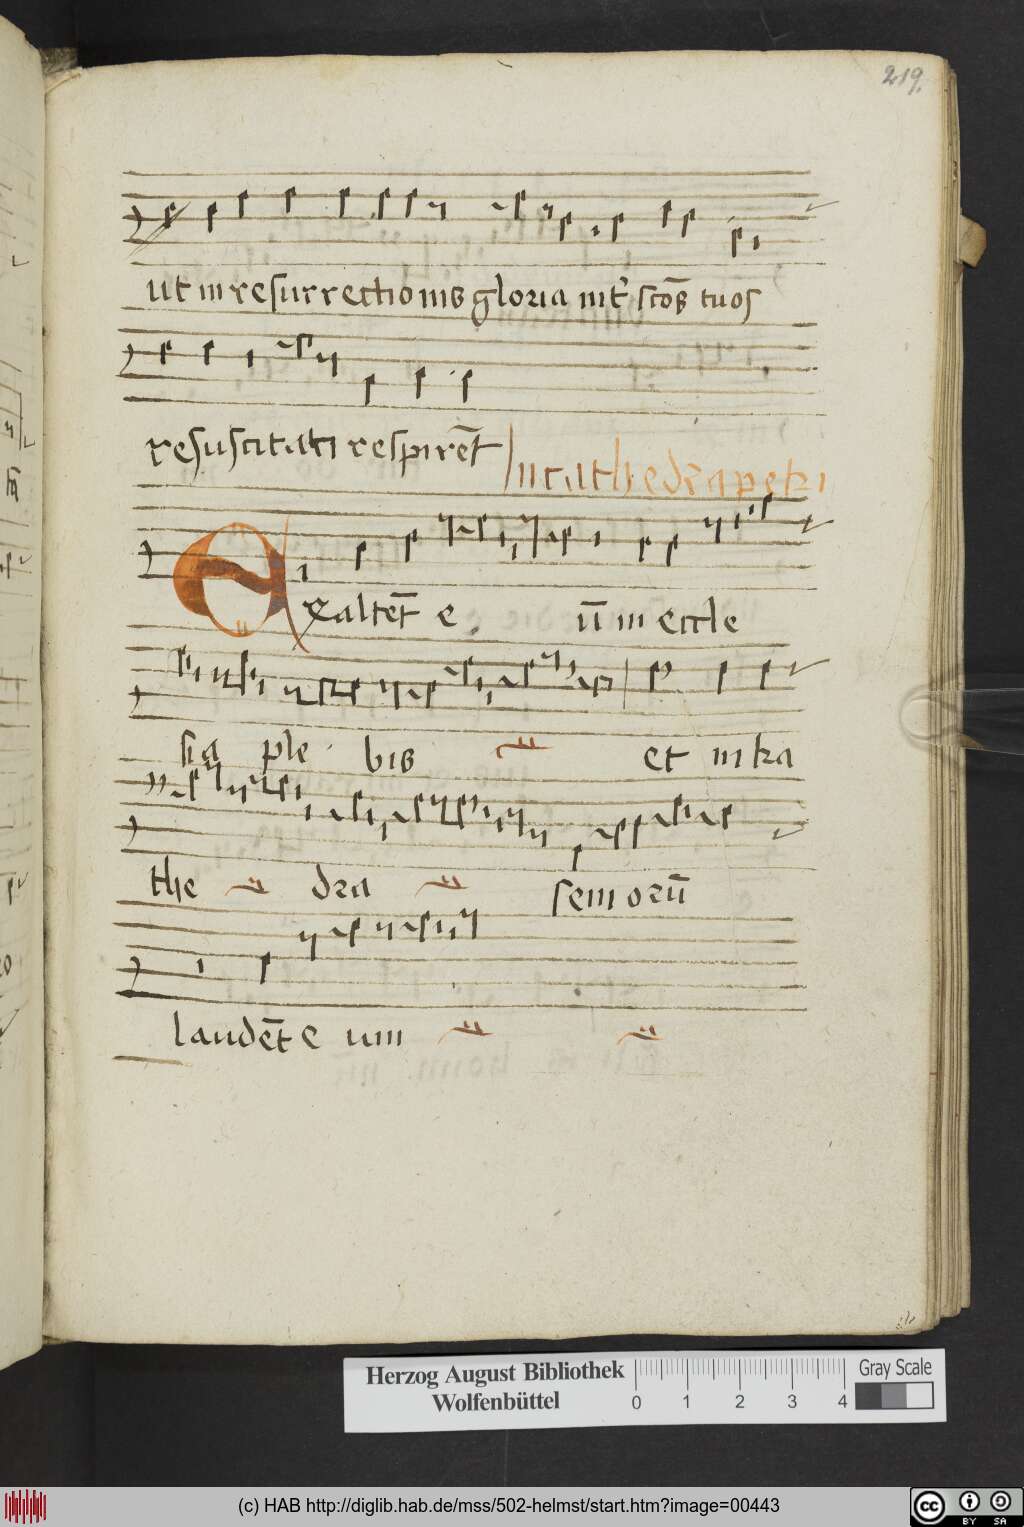 219.
ut in resurrectionis gloria int᷒ scōs tuos
resuscitati respirēt
In cathedra petri
Exaltēt e ūm in eccle
sia ple bis et in ka
the dra seniorū
laudēt e um
Herzog August Bibliothek
Wolfenbüttel
0 1 2 3 4
Gray Scale
(c) HAB http://diglib.hab.de/mss/502-helmst/start.htm?image=00443
cc BY SA